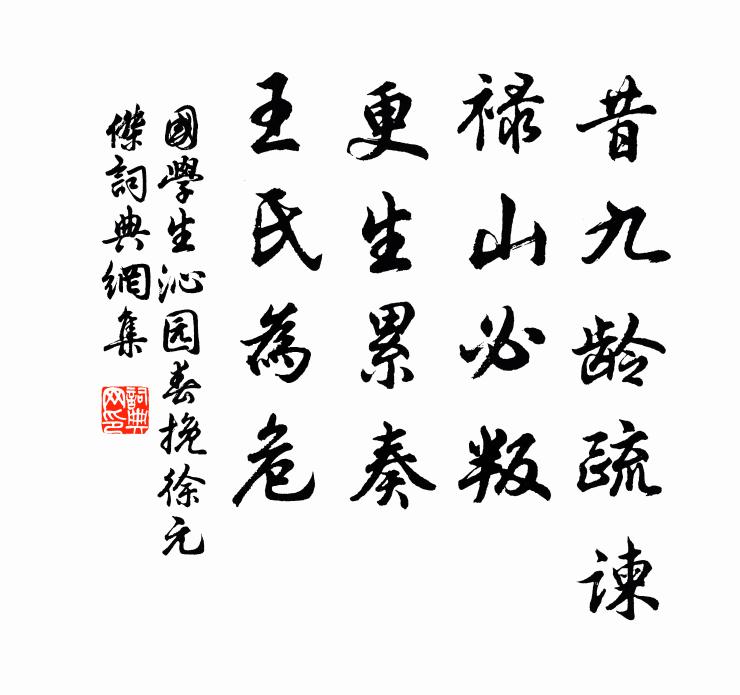 昔九龄疏谏
禄山必叛
更生累奏
王氏為危
國學生沁园春挽徐元
傑詞典網集
詞典网印